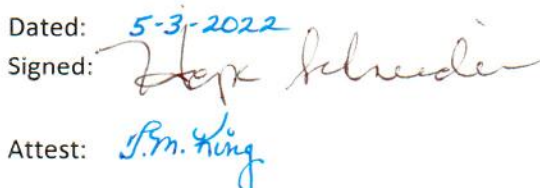 Dated: 5-3-2022
Signed: Hope Schneider
Attest: S.M. King